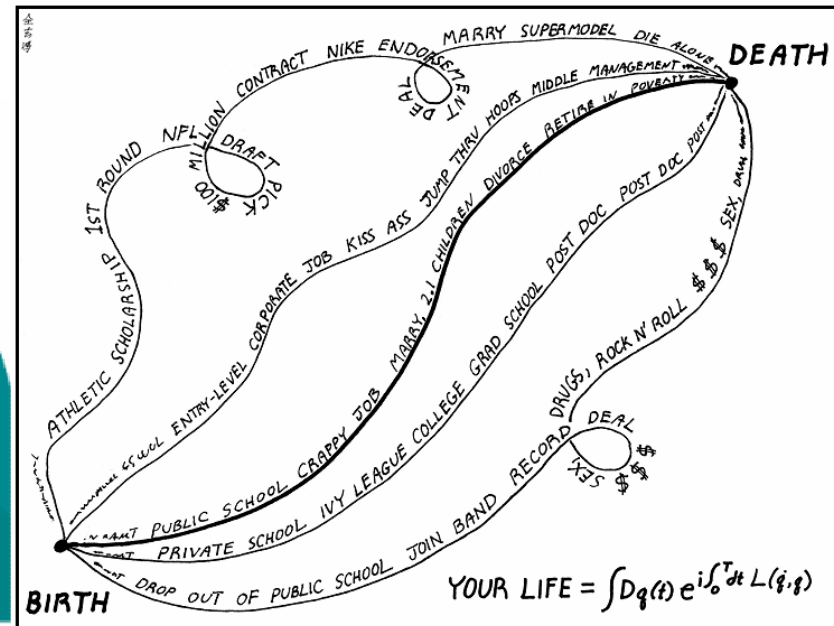 全吉得
MARRY SUPERMODEL DIE ALONE
DEATH
1ST ROUND NFL DRAFT PICK $100 MILLION CONTRACT NIKE ENDORSEMENT DEAL
ATHLETIC SCHOLARSHIP
ENTRY-LEVEL CORPORATE JOB KISS ASS JUMP THRU HOOPS MIDDLE MANAGEMENT
PUBLIC SCHOOL CRAPPY JOB MARRY, 2.1 CHILDREN DIVORCE RETIRE IN POVERTY
PRIVATE SCHOOL IVY LEAGUE COLLEGE GRAD SCHOOL POST DOC POST DOC POST
DROP OUT OF PUBLIC SCHOOL JOIN BAND RECORD DEAL $ $ $ SEX, DRUGS, ROCK N' ROLL $ $ $ SEX, DRUG
BIRTH
YOUR LIFE = ∫Dq(t) e^{i∫_0^T dt L(q̇,q)}